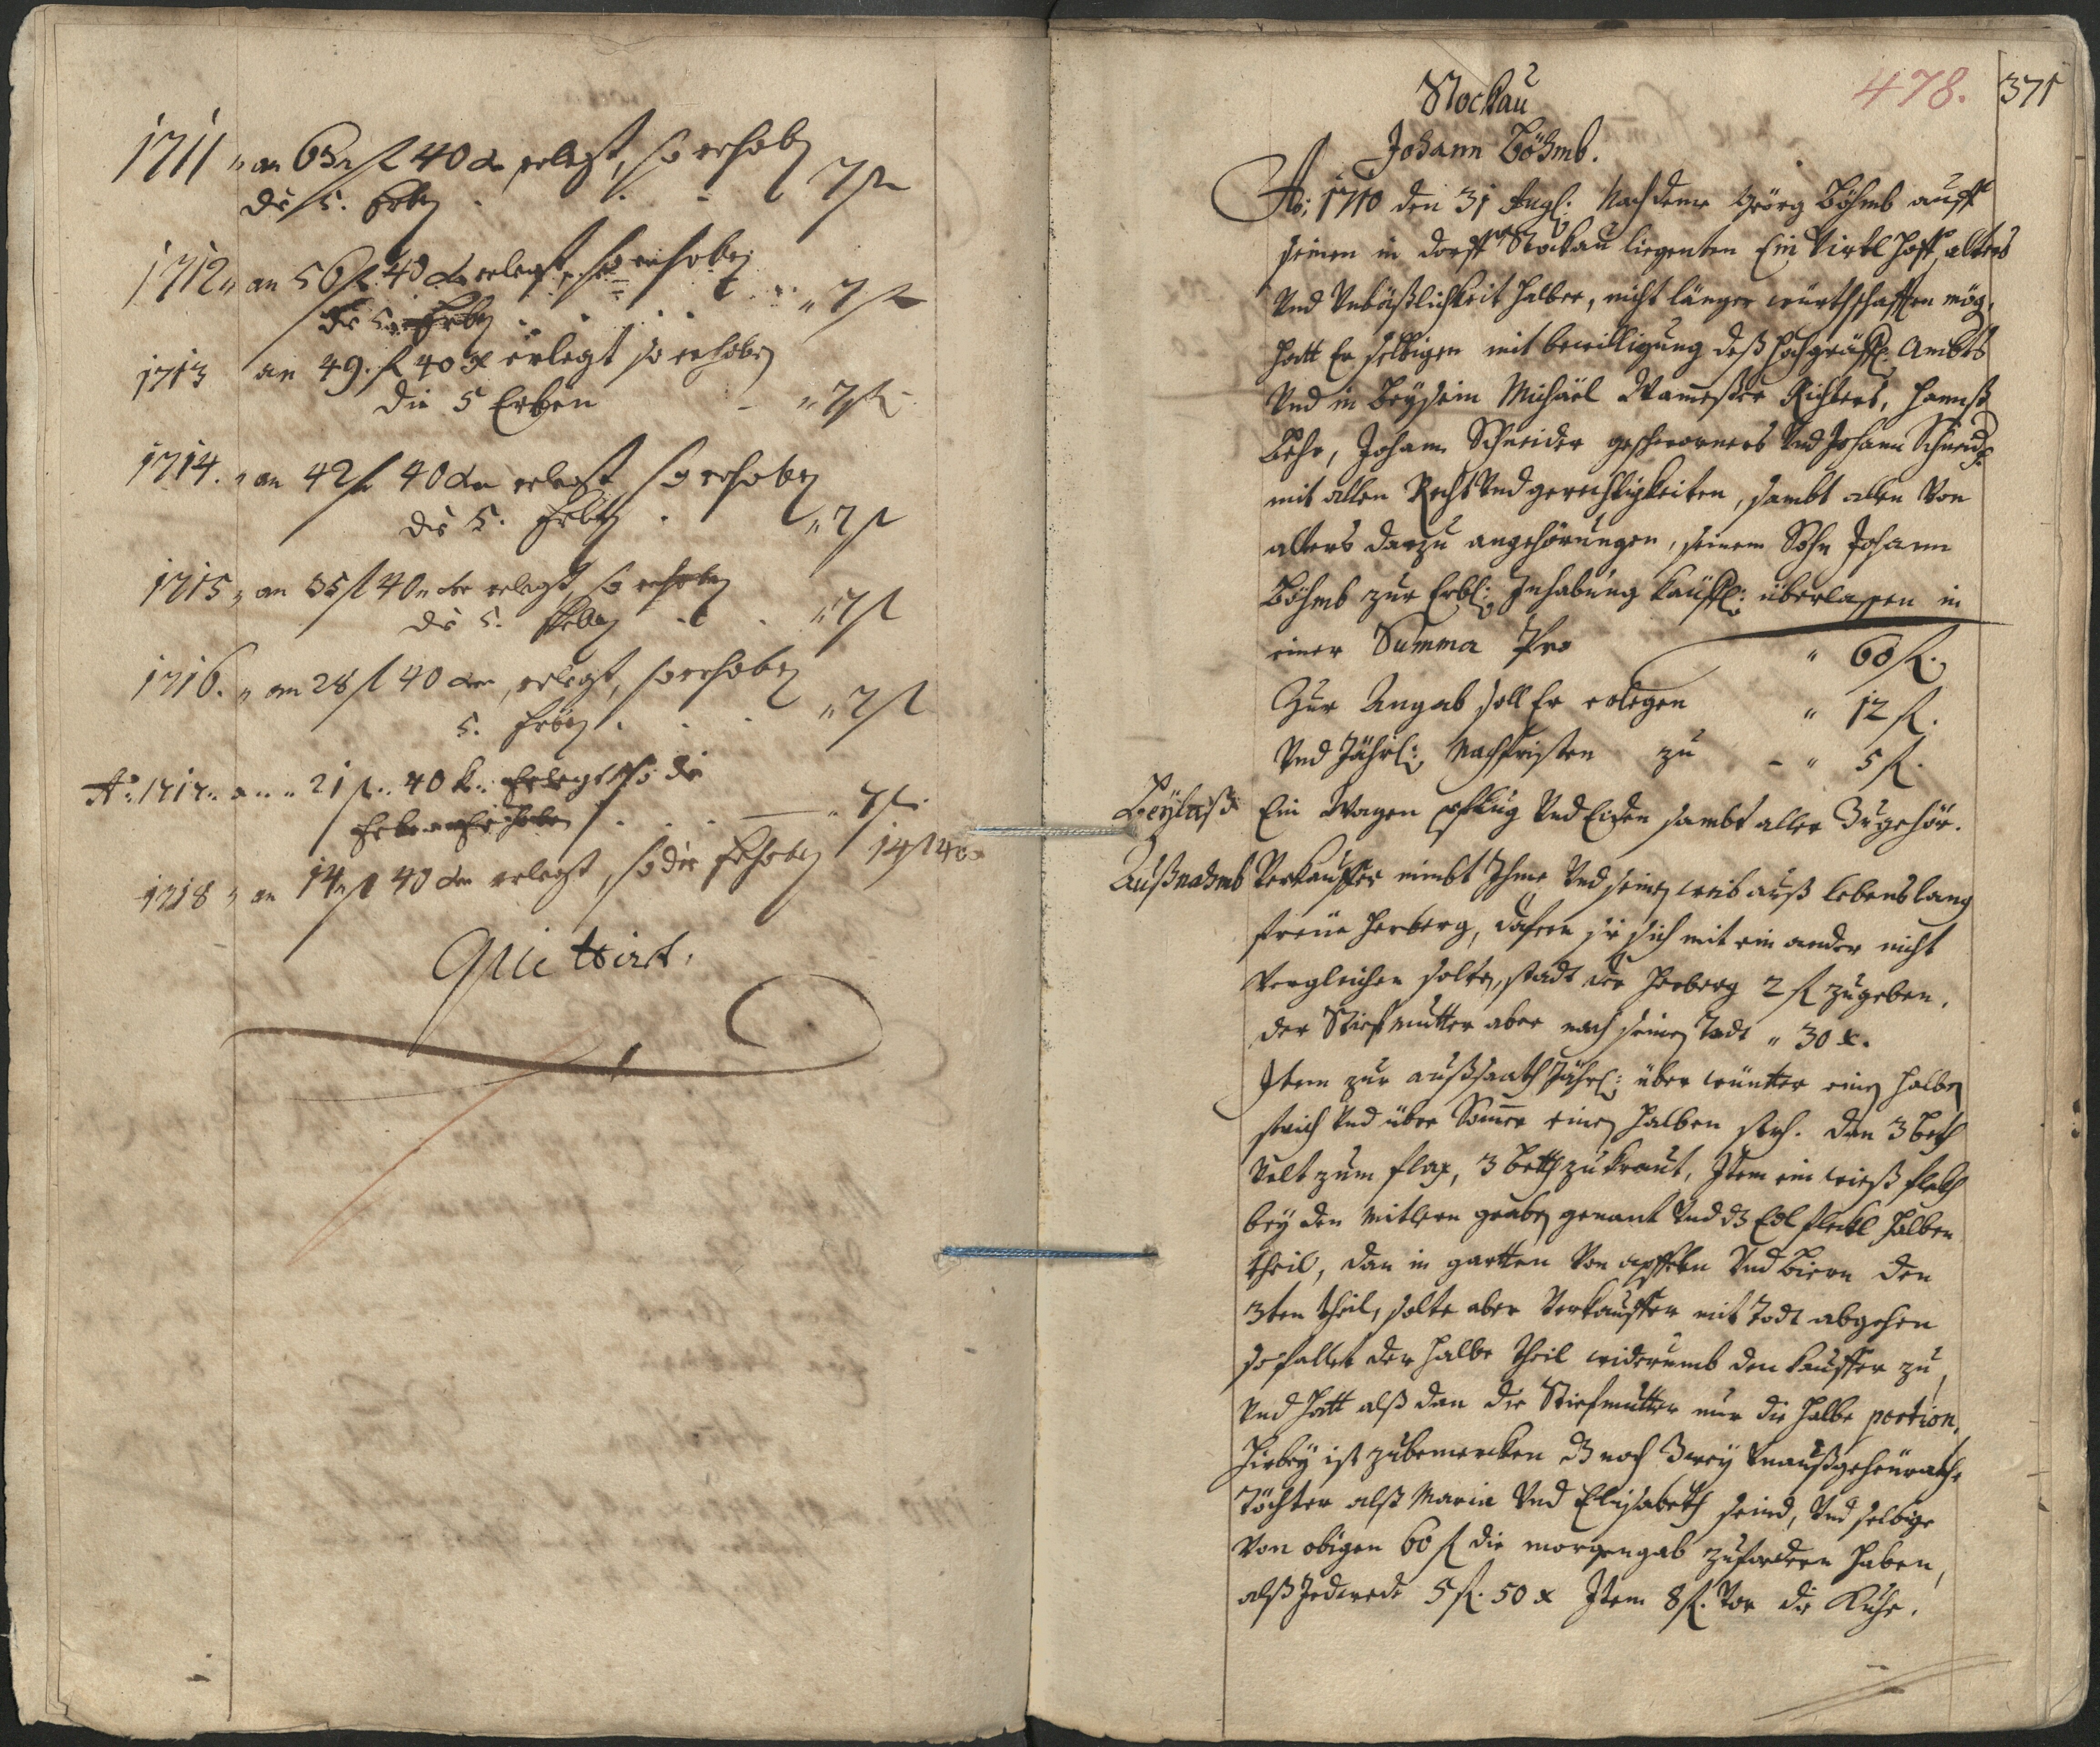 1711 " an 63 fl 40 dn erlegt, so erhoben
die 5. Erben . . . 7 fl
1712 " an 56 fl 40 dn erlegt, so erhoben
die 5 Erben . . . " 7 fl
1713 an 49. fl 40 x erlegt so erhoben
die 5 Erben - " 7 fl
1714. " an 42 fl 40 dn erlegt so erhoben
die 5. Erben . " 7 fl
1715 " an 35 fl 40 dn erlegt, so erhoben
die 5. Erben . . " 7 fl
1716. " an 28 fl 40 dn, erlegt, so erhoben
5. Erben . . . " 7 fl
Ao: 1717 " an " 21 fl " 40 k: Erlegt so die
Erben erhoben . . . — " 7 fl
1718 " an 14 fl 40 dn erlegt, so die Erhoben 14 fl 40
Quittirt.
478. 371
Stockau
Johann Böhmb.
Ao: 1710 den 31 Augl: Nach deme Georg Böhmb auff
seinen in dorff Stockau liegenten Ein Virtl Hoff, alters
Vnd Vnbäßlichkeit halber, nicht länger würthschafften mög,
Hatt Er selbigen mit bewilligung deß Hochgräffl: Ambts
Vnd in Beysein Michäel Richters, Hannß
Behr, Johann Schneider geschworners Vnd Johann Schneid.
mit allen Recht Vnd gerechtigkeiten, sambt allen Von
alters darzu angehörungen, seinem Sohn Johann
Böhmb zur Erbl: Inhabung käuffl: überlassen in
einer Summa Pro " 60 fl.
Zur Angab soll Er erlegen " 12 fl.
Vnd Jährl: Nachfristen zu - " 5 fl.
Beylaß Ein Wagen pflug Vnd Eiden sambt aller Zugehör.
Außnahmb Verkauffer nimbt Ihme Vnd seinen weib auß lebenslang
freüe Herberg, dafern sie sich mit ein ander nicht
Vergleichen solten, stadt der Herberg 2 fl zugeben.
der Stiefmutter aber nach seinen Todt " 30 x.
Item zur außsaath Jährl: über wünter einen halben
strich Vnd über Sommer einen halben strh. dan 3 beth
Velt zum flax, 3 beth zu kraut, Item ein wieß fleckh
bey den mitlern graben genant Vnd dz fleckl halben
theil, dan in gartten Von apffeln Vnd Birn den
3ten theil, solte aber Verkauffer mit Todt abgehen
so fallet der halbe theil widerumb den kauffer zu,
Vnd hatt alß dan die Stiefmutter nur die halbe portion.
Hirbey ist zubemercken dz noch Zwey Vnaußgeheurathe
Töchter alß Maria Vnd Elisabeth seind, Vnd selbige
Von obigen 60 fl die morgengab zufordern haben,
alß Jedwede 5 fl. 50 x Item 8 fl. Vor die Kuhe.